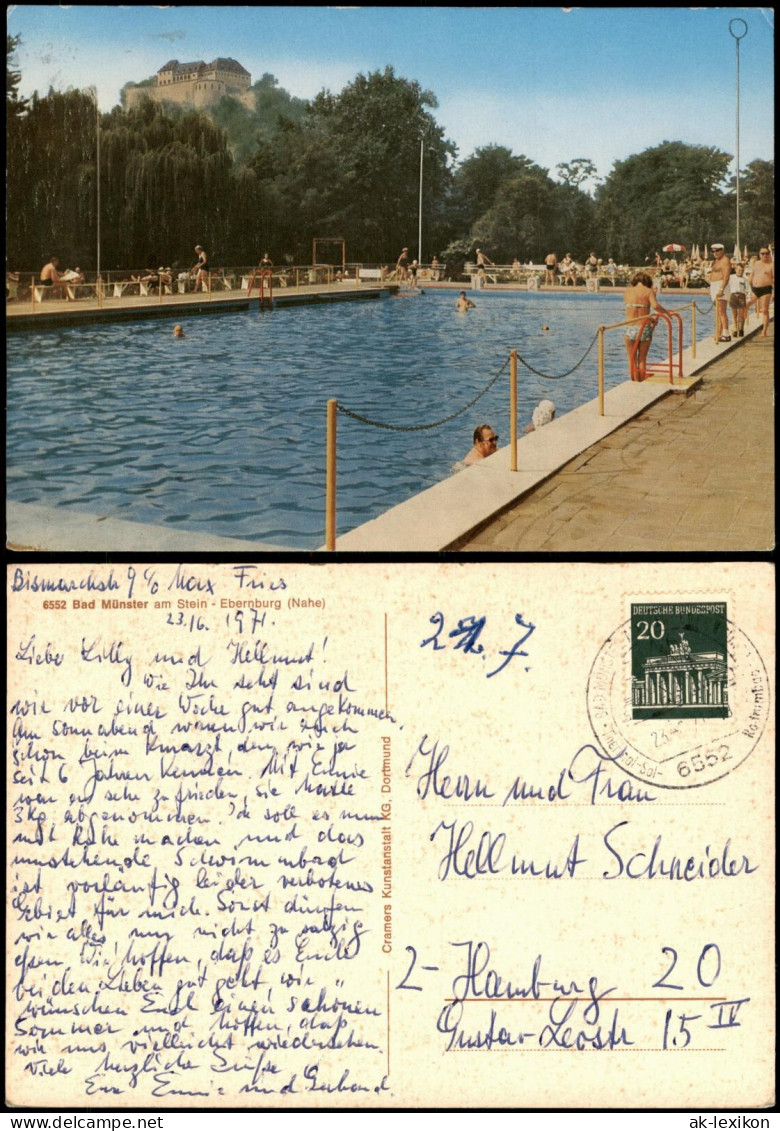 Bismarckstr 9 c/o Max Fries
6552 Bad Münster am Stein - Ebernburg (Nahe)
23./6. 1971.
Liebe Lilly und Hellmut!
Wie Ihr seht sind
wir vor einer Woche gut angekommen.
Am Sonnabend waren wir auch
schon beim Kurarzt, den wir ja
seit 6 Jahren kennen. Mit Ennie
war er sehr zufrieden, sie hatte
3kg abgenommen. Ich soll es nun
mit Ruhe machen und das
umstehende Schwimmbad
ist vorläufig leider verbotenes
Gebiet für mich. Sonst dürfen
wir alles nur nicht zu salzig
essen. Wir hoffen, daß es Euch
beiden Lieben gut geht, wir
wünschen Euch einen schönen
Sommer und hoffen, daß
wir uns vielleicht wiedersehen.
Viele herzliche Grüße
Eure Ennie und Gerhard.
Cramers Kunstanstalt KG, Dortmund
DEUTSCHE BUNDESPOST
20
6552
Herrn und Frau
Hellmut Schneider
2-Hamburg 20
Gustav-Leostr 15 IV
ak-lexikon
www.delcampe.net